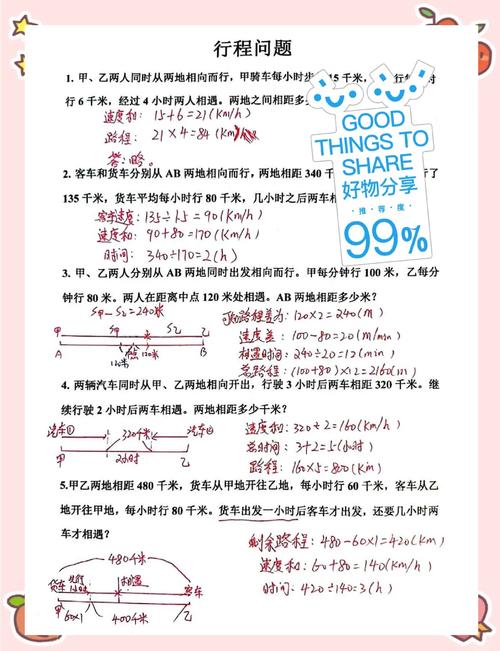 行程问题
1. 甲、乙两人同时从两地相向而行,甲骑车每小时 15 千米,
行 6 千米,经过 4 小时两人相遇。两地之间相距多
速度和: 15+6=21(km/h)
路程: 21×4=84(km)
答:略。
GOOD
THINGS TO
SHARE
好物分享
推荐度
99%
2. 客车和货车分别从 AB 两地相向而行,两地相距 340
135 千米,货车平均每小时行 80 千米,几小时之后两车相
客车速度: 135÷1.5=90(km/h)
速度和: 90+80=170(km/h)
时间: 340÷170=2(h)
3. 甲、乙两人分别从 AB 两地同时出发相向而行。甲每分钟行 100 米,乙每
分钟行 80 米。两人在距离中点 120 米处相遇。AB 两地相距多少米?
S甲-S乙=240米
路程差为: 120×2=240(m)
甲 S甲 S乙 乙
A 120米 120米 B
速度差: 100-80=20(m/min)
相遇时间: 240÷20=12(min)
总路程: (100+80)×12=2160(m)
4. 两辆汽车同时从甲、乙两地相向开出,行驶 3 小时后两车相距 320 千米。继
续行驶 2 小时后两车相遇。两地相距多少千米?
汽车① 320千米 汽车②
甲 2小时 乙
速度和: 320÷2=160(km/h)
总时间: 3+2=5(小时)
路程: 160×5=800(km)
5.甲乙两地相距 480 千米,货车从甲地开往乙地,每小时行 60 千米,客车从乙
地开往甲地,每小时行 80 千米。货车出发一小时后客车才出发,还要几小时两
车才相遇?
480千米
货车 相遇 客车
甲 60×1 乙
剩余路程: 480-60×1=420(km)
速度和: 60+80=140(km/h)
时间: 420÷140=3(h)